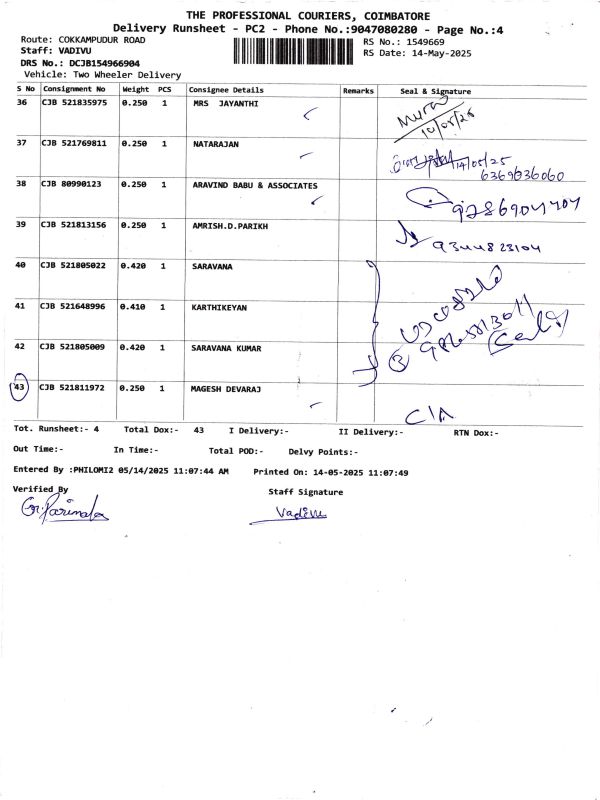 THE PROFESSIONAL COURIERS, COIMBATORE
Delivery Runsheet - PC2 - Phone No.:9047080280 - Page No.:4
Route: COKKAMPUDUR ROAD
RS No.: 1549669
Staff: VADIVU
RS Date: 14-May-2025
DRS No.: DCJB154966904
Vehicle: Two Wheeler Delivery
S No Consignment No Weight PCS Consignee Details Remarks Seal & Signature
36 CJB 521835975 0.250 1 MRS JAYANTHI
37 CJB 521769811 0.250 1 NATARAJAN
14/05/25
6369036060
38 CJB 80990123 0.250 1 ARAVIND BABU & ASSOCIATES
39 CJB 521813156 0.250 1 AMRISH.D.PARIKH
9344823104
40 CJB 521805022 0.420 1 SARAVANA
41 CJB 521648996 0.410 1 KARTHIKEYAN
42 CJB 521805009 0.420 1 SARAVANA KUMAR
3
43 CJB 521811972 0.250 1 MAGESH DEVARAJ
C/A
Tot. Runsheet:- 4 Total Dox:- 43 I Delivery:- II Delivery:- RTN Dox:-
Out Time:- In Time:- Total POD:- Delvy Points:-
Entered By :PHILOMI2 05/14/2025 11:07:44 AM Printed On: 14-05-2025 11:07:49
Verified By Staff Signature
Vadivu